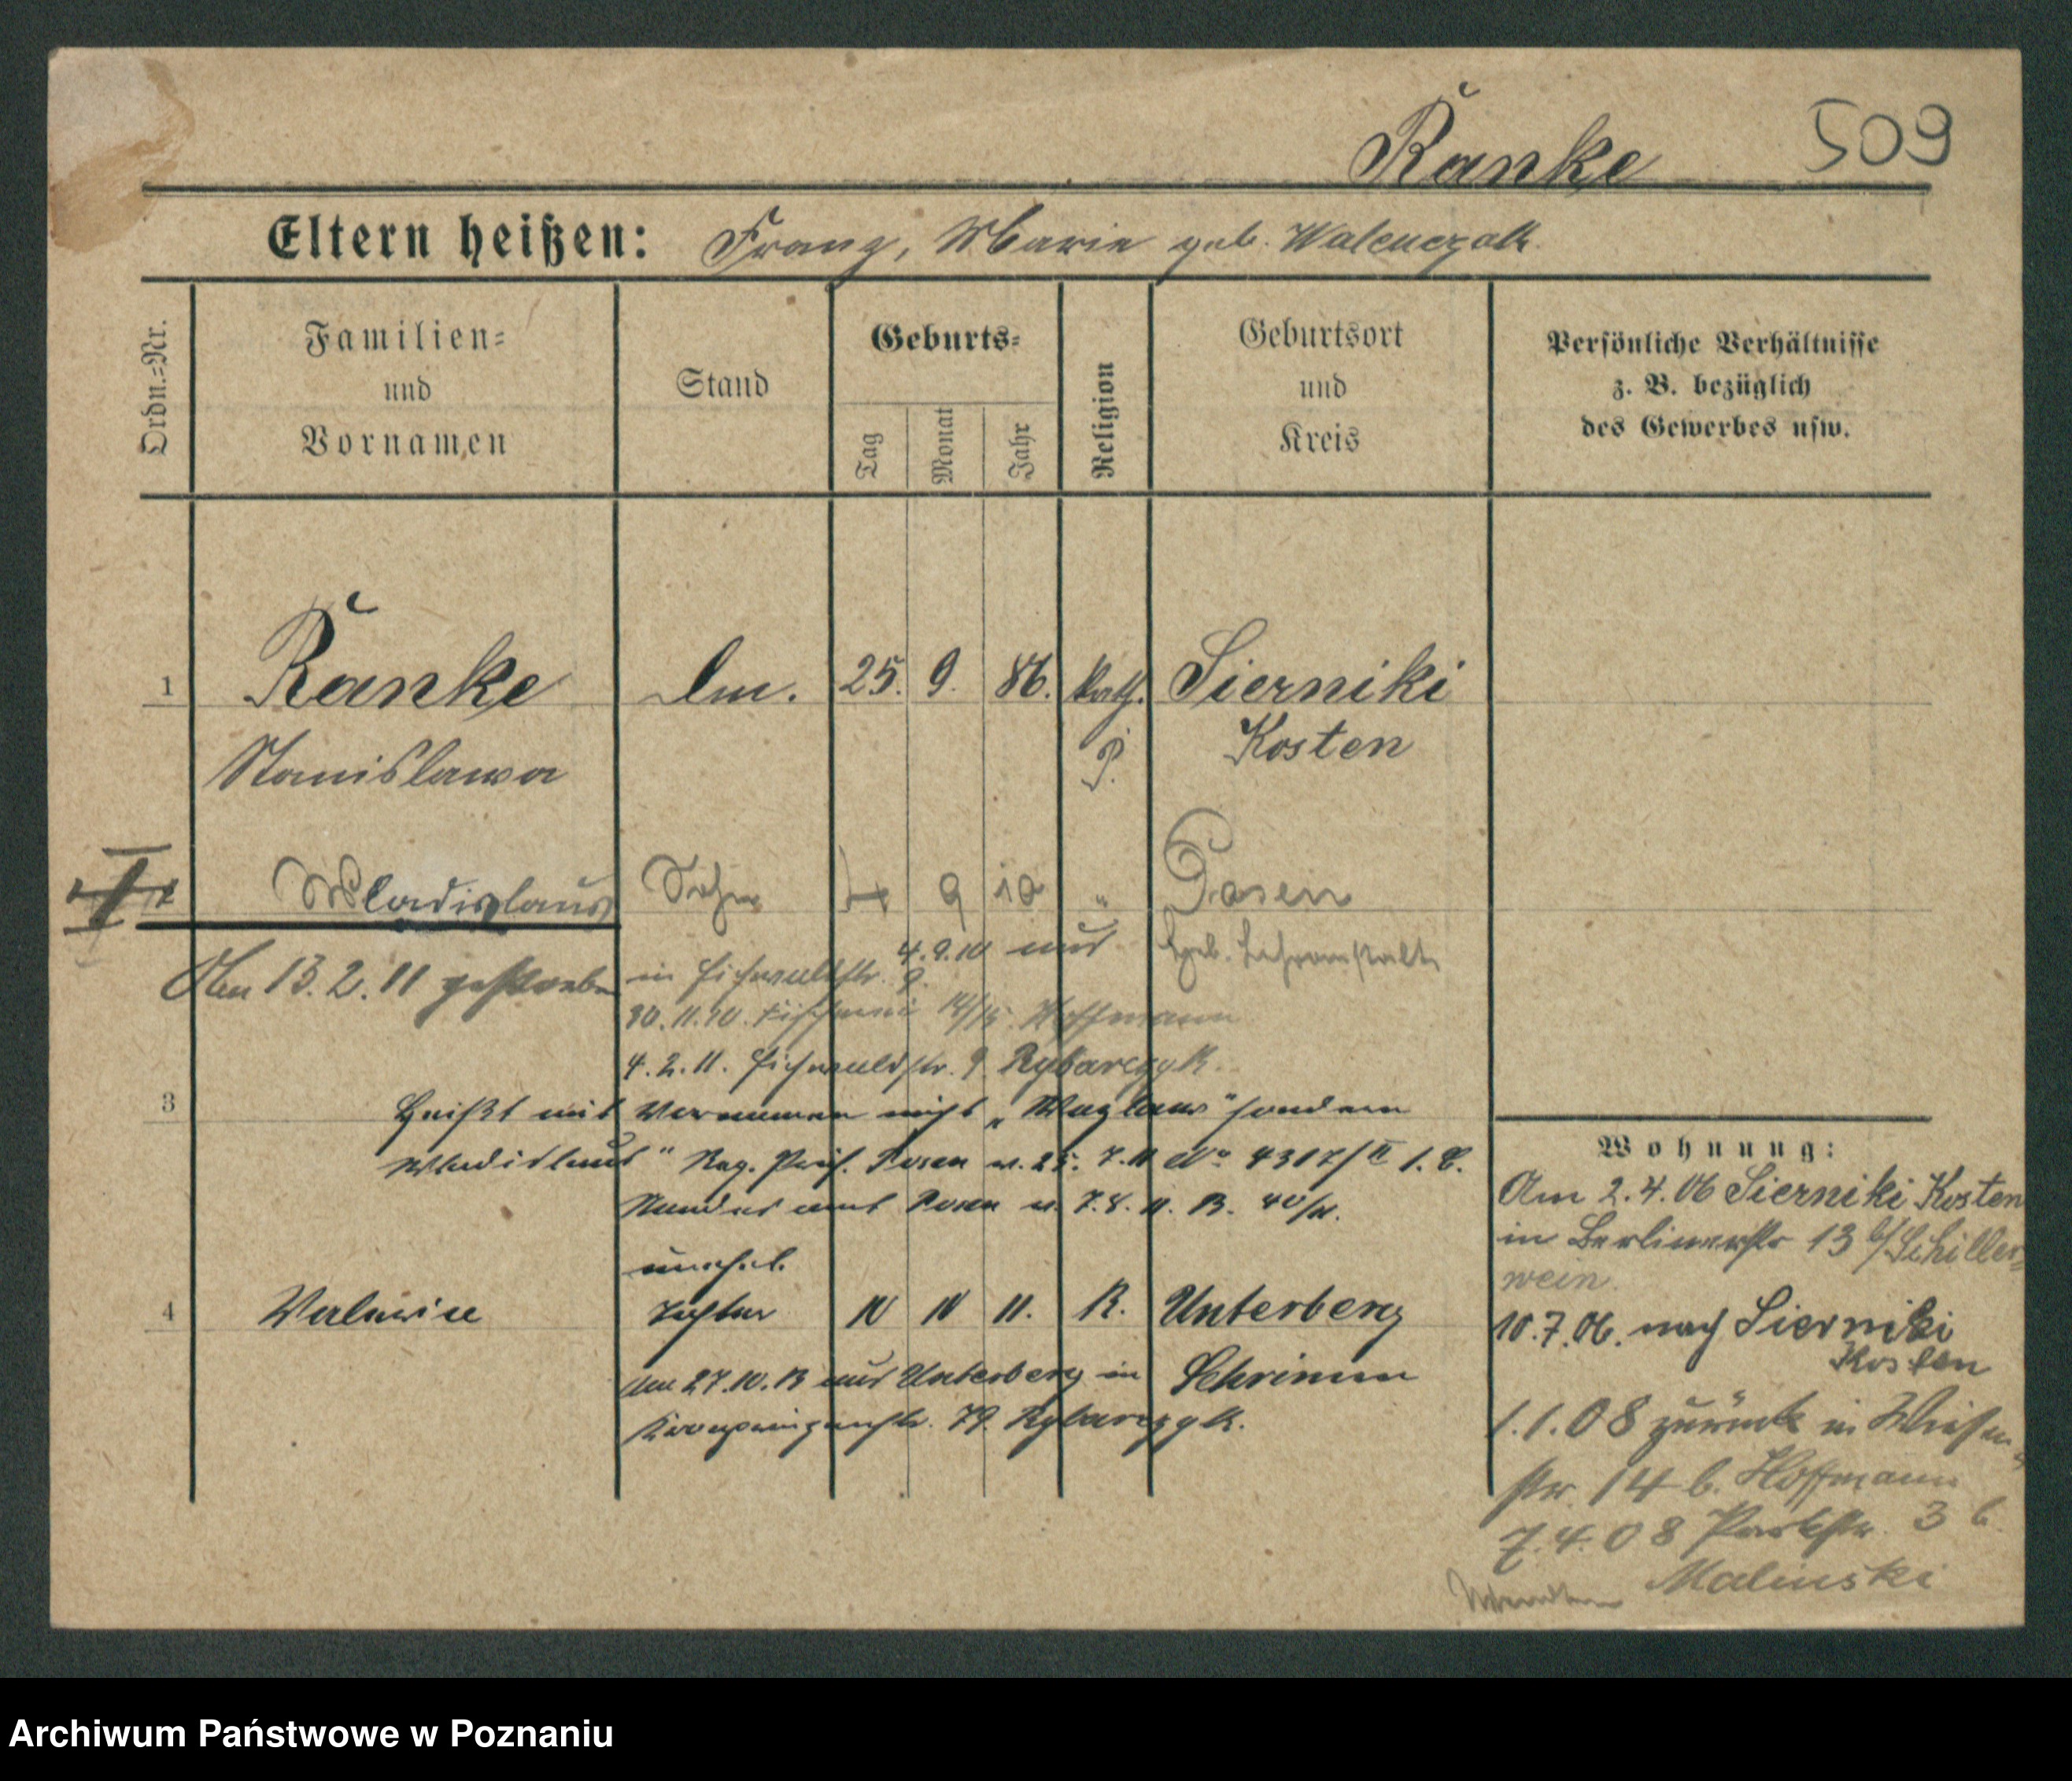 Ranke 509
Eltern heißen: Franz, Marie geb. Walenczak
Ordn.-Nr.
Familien-
und
Vornamen
Stand
Geburts-
Tag
Monat
Jahr
Religion
Geburtsort
und
Kreis
Persönliche Verhältnisse
z. B. bezüglich
des Gewerbes usw.
1 Ranke 25. 9. 86. kath. Sierniki
Stanislawa P. Kosten
Wladislaus Sohn 4 9 10 " Posen
4.9.10 aus Heb. Lehranstalt
Am 13.2.11 gestorben in Eichwaldstr. 9.
30.11.10. 14/15 Hoffmann
4.2.11. Eichwaldstr. 9 Rybarczyk.
3 Heißt mit Vornamen nicht „Wazlaw" sondern
Wladislaus" Reg. Präs. Posen v. 25. 7. 11 No 4317/II
Standesamt Posen v. 7. 8. 11. B. 40/11.
unehel.
4 Tochter 10 10 11. K. Unterberg
Am 27.10.13 aus Unterberg in Schrimm
Kronprinzenstr. 79. Rybarczyk.
Wohnung:
Am 2.4.06 Sierniki Kosten
in Berlinerstr 13 b/Schiller-
wein.
10.7.06. nach Sierniki
Kosten
1.1.08 zurück in Wiesen-
str. 14 b. Hoffmann
7.4.08 Parkstr. 3 b.
Malinski
Wenden
Archiwum Państwowe w Poznaniu